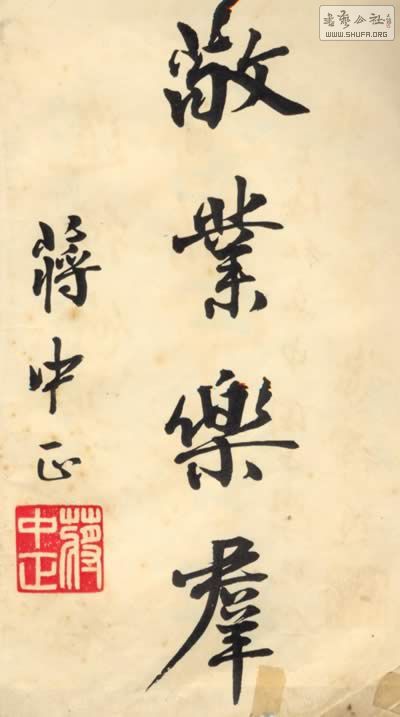 敬業樂羣
蔣中正
蔣中正
書藝公社
WWW.SHUFA.ORG